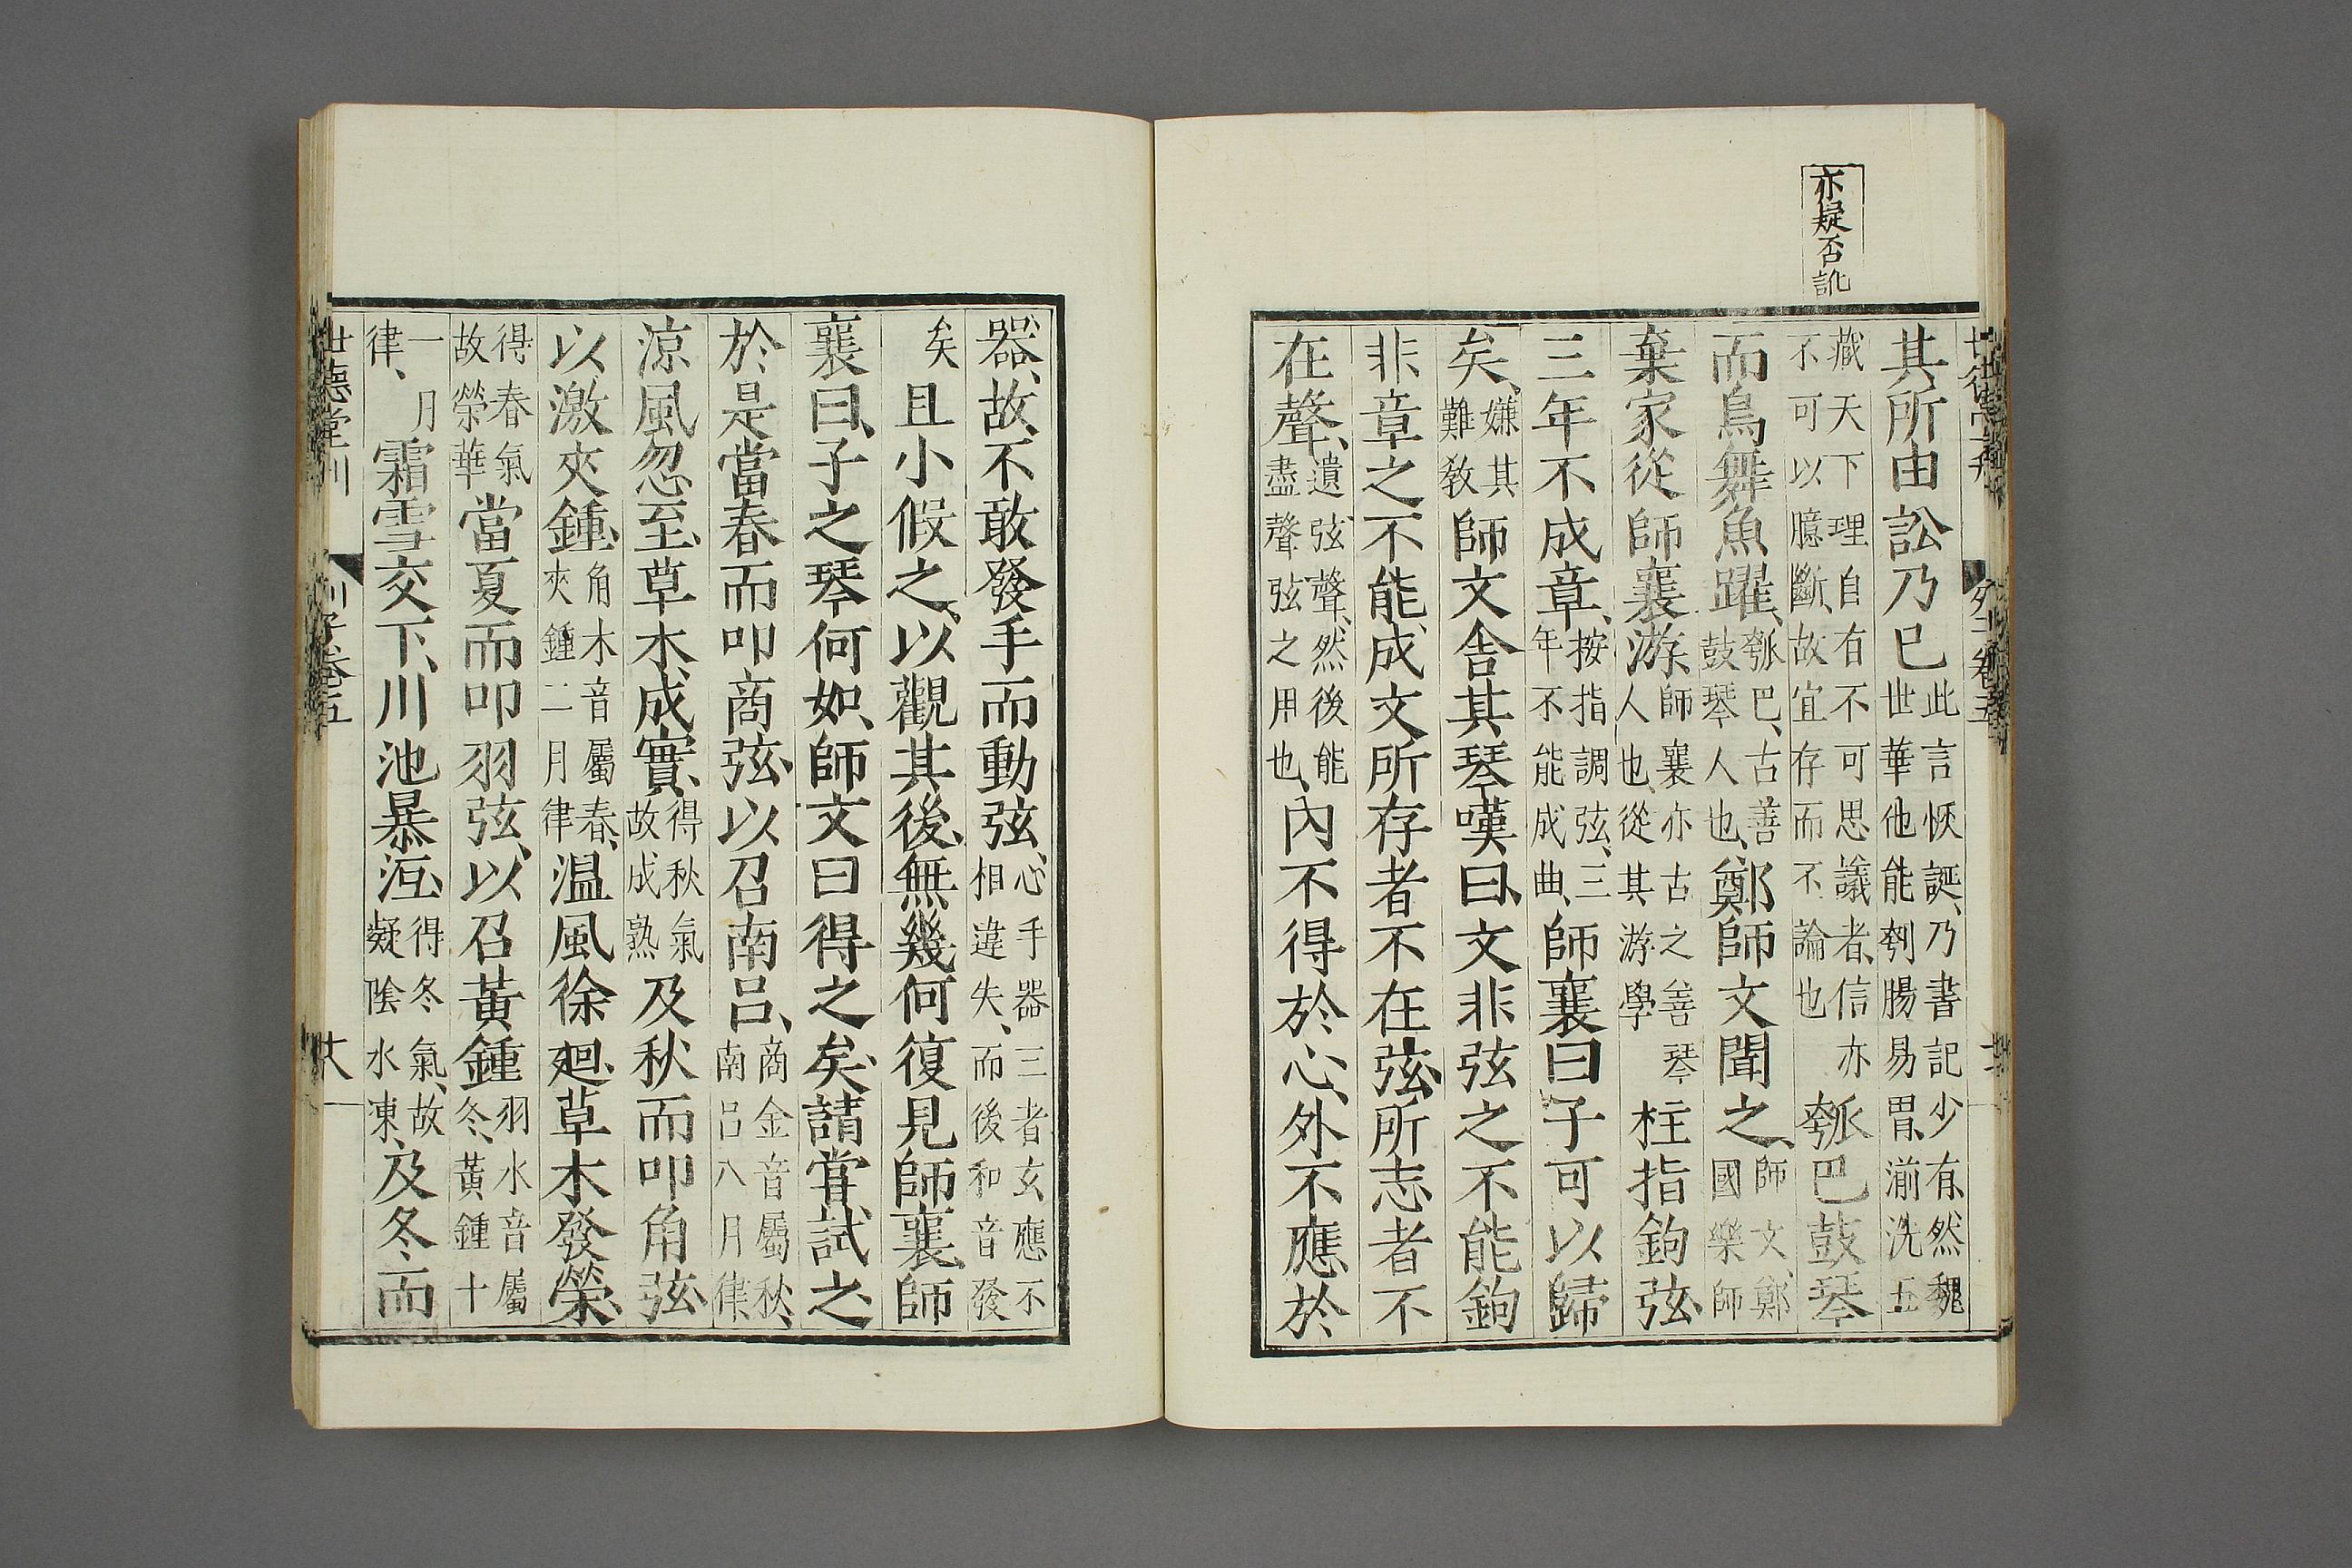 亦疑否訛
其所由訟乃巳此言恢誕、乃書記少有、然魏世華他能刳腸易胃、湔洗五
藏天下理自有不可思議者、信亦不可以臆斷、故宜存而不論也瓠巴鼓琴
而鳥舞魚躍、瓠巴、古善鼓琴人也、鄭師文聞之、師文、鄭國樂師
棄家從師襄游師襄亦古之善琴人也、從其游學柱指鉤弦
三年不成章、按指調弦、三年不能成曲、師襄曰子可以歸
矣、嫌其難教師文舍其琴嘆曰、文非弦之不能鉤
非章之不能成、文所存者不在弦、所志者不
在聲、遺弦聲、然後能盡聲弦之用也、內不得於心、外不應於
器、故、不敢發手而動弦、心手器三者玄應不相違失、而後和音發
矣且小假之、以觀其後、無幾何復見師襄、師
襄曰、子之琴何如、師文曰得之矣、請嘗試之、
於是當春而叩商弦、以召南呂、商金音屬秋、南呂八月律、
涼風忽至、草木成實、得秋氣故成熟及秋而叩角弦
以激夾鍾、角木音屬春、夾鍾二月律溫風徐廻、草木發榮、
得春氣故榮華當夏而叩羽弦、以召黃鍾羽水音屬冬、黃鍾十
一月律、霜雪交下、川池暴沍、得冬氣、故凝陰水凍、及冬而
世德堂刊
列子卷五
十八